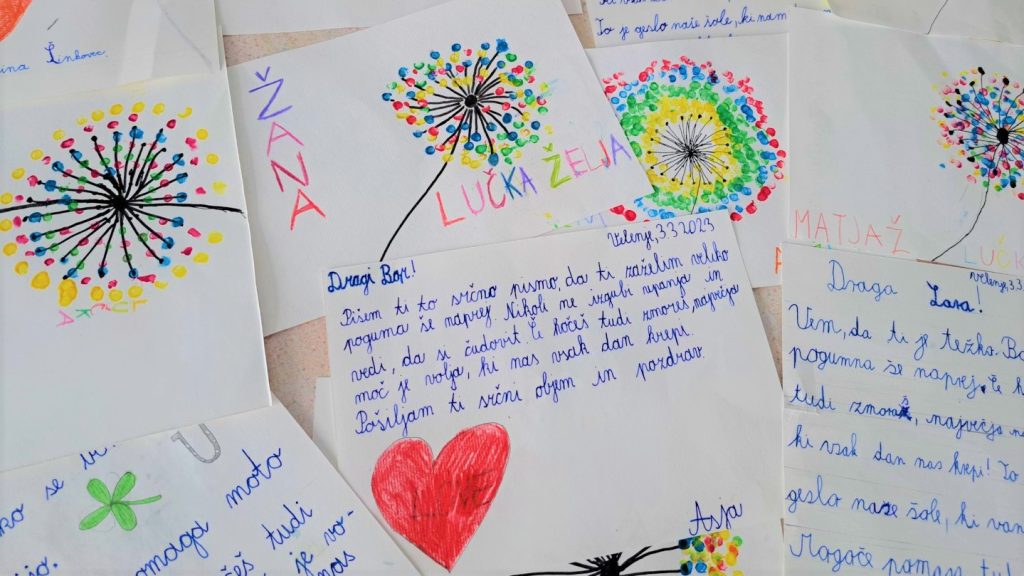 Linkovec.
To je geslo naše šole, ki nam
ŽANA
LUČKA ŽELJA
MATJAŽ
LUČK
Velenje, 3.3.2023
Dragi Bor!
Pišem ti to srčno pismo, da ti zaželim veliko
poguma še naprej. Nikoli ne izgubi upanja in
vedi, da si čudovit. Če hočeš tudi zmoreš, največja
moč je volja, ki nas vsak dan krepi.
Pošiljam ti srčni objem in pozdrav.
LOVE
Asja
Velenje, 3.3
Draga Zara!
Vem, da ti je težko. Bo
pogumna še naprej. Če h
tudi zmoreš, največja m
ki vsak dan nas krepi! To
geslo naše šole, ki van
Mogoče poznan tud
U
ko se bi
jo.
omaga moto
češ tudi
je vo-
nas